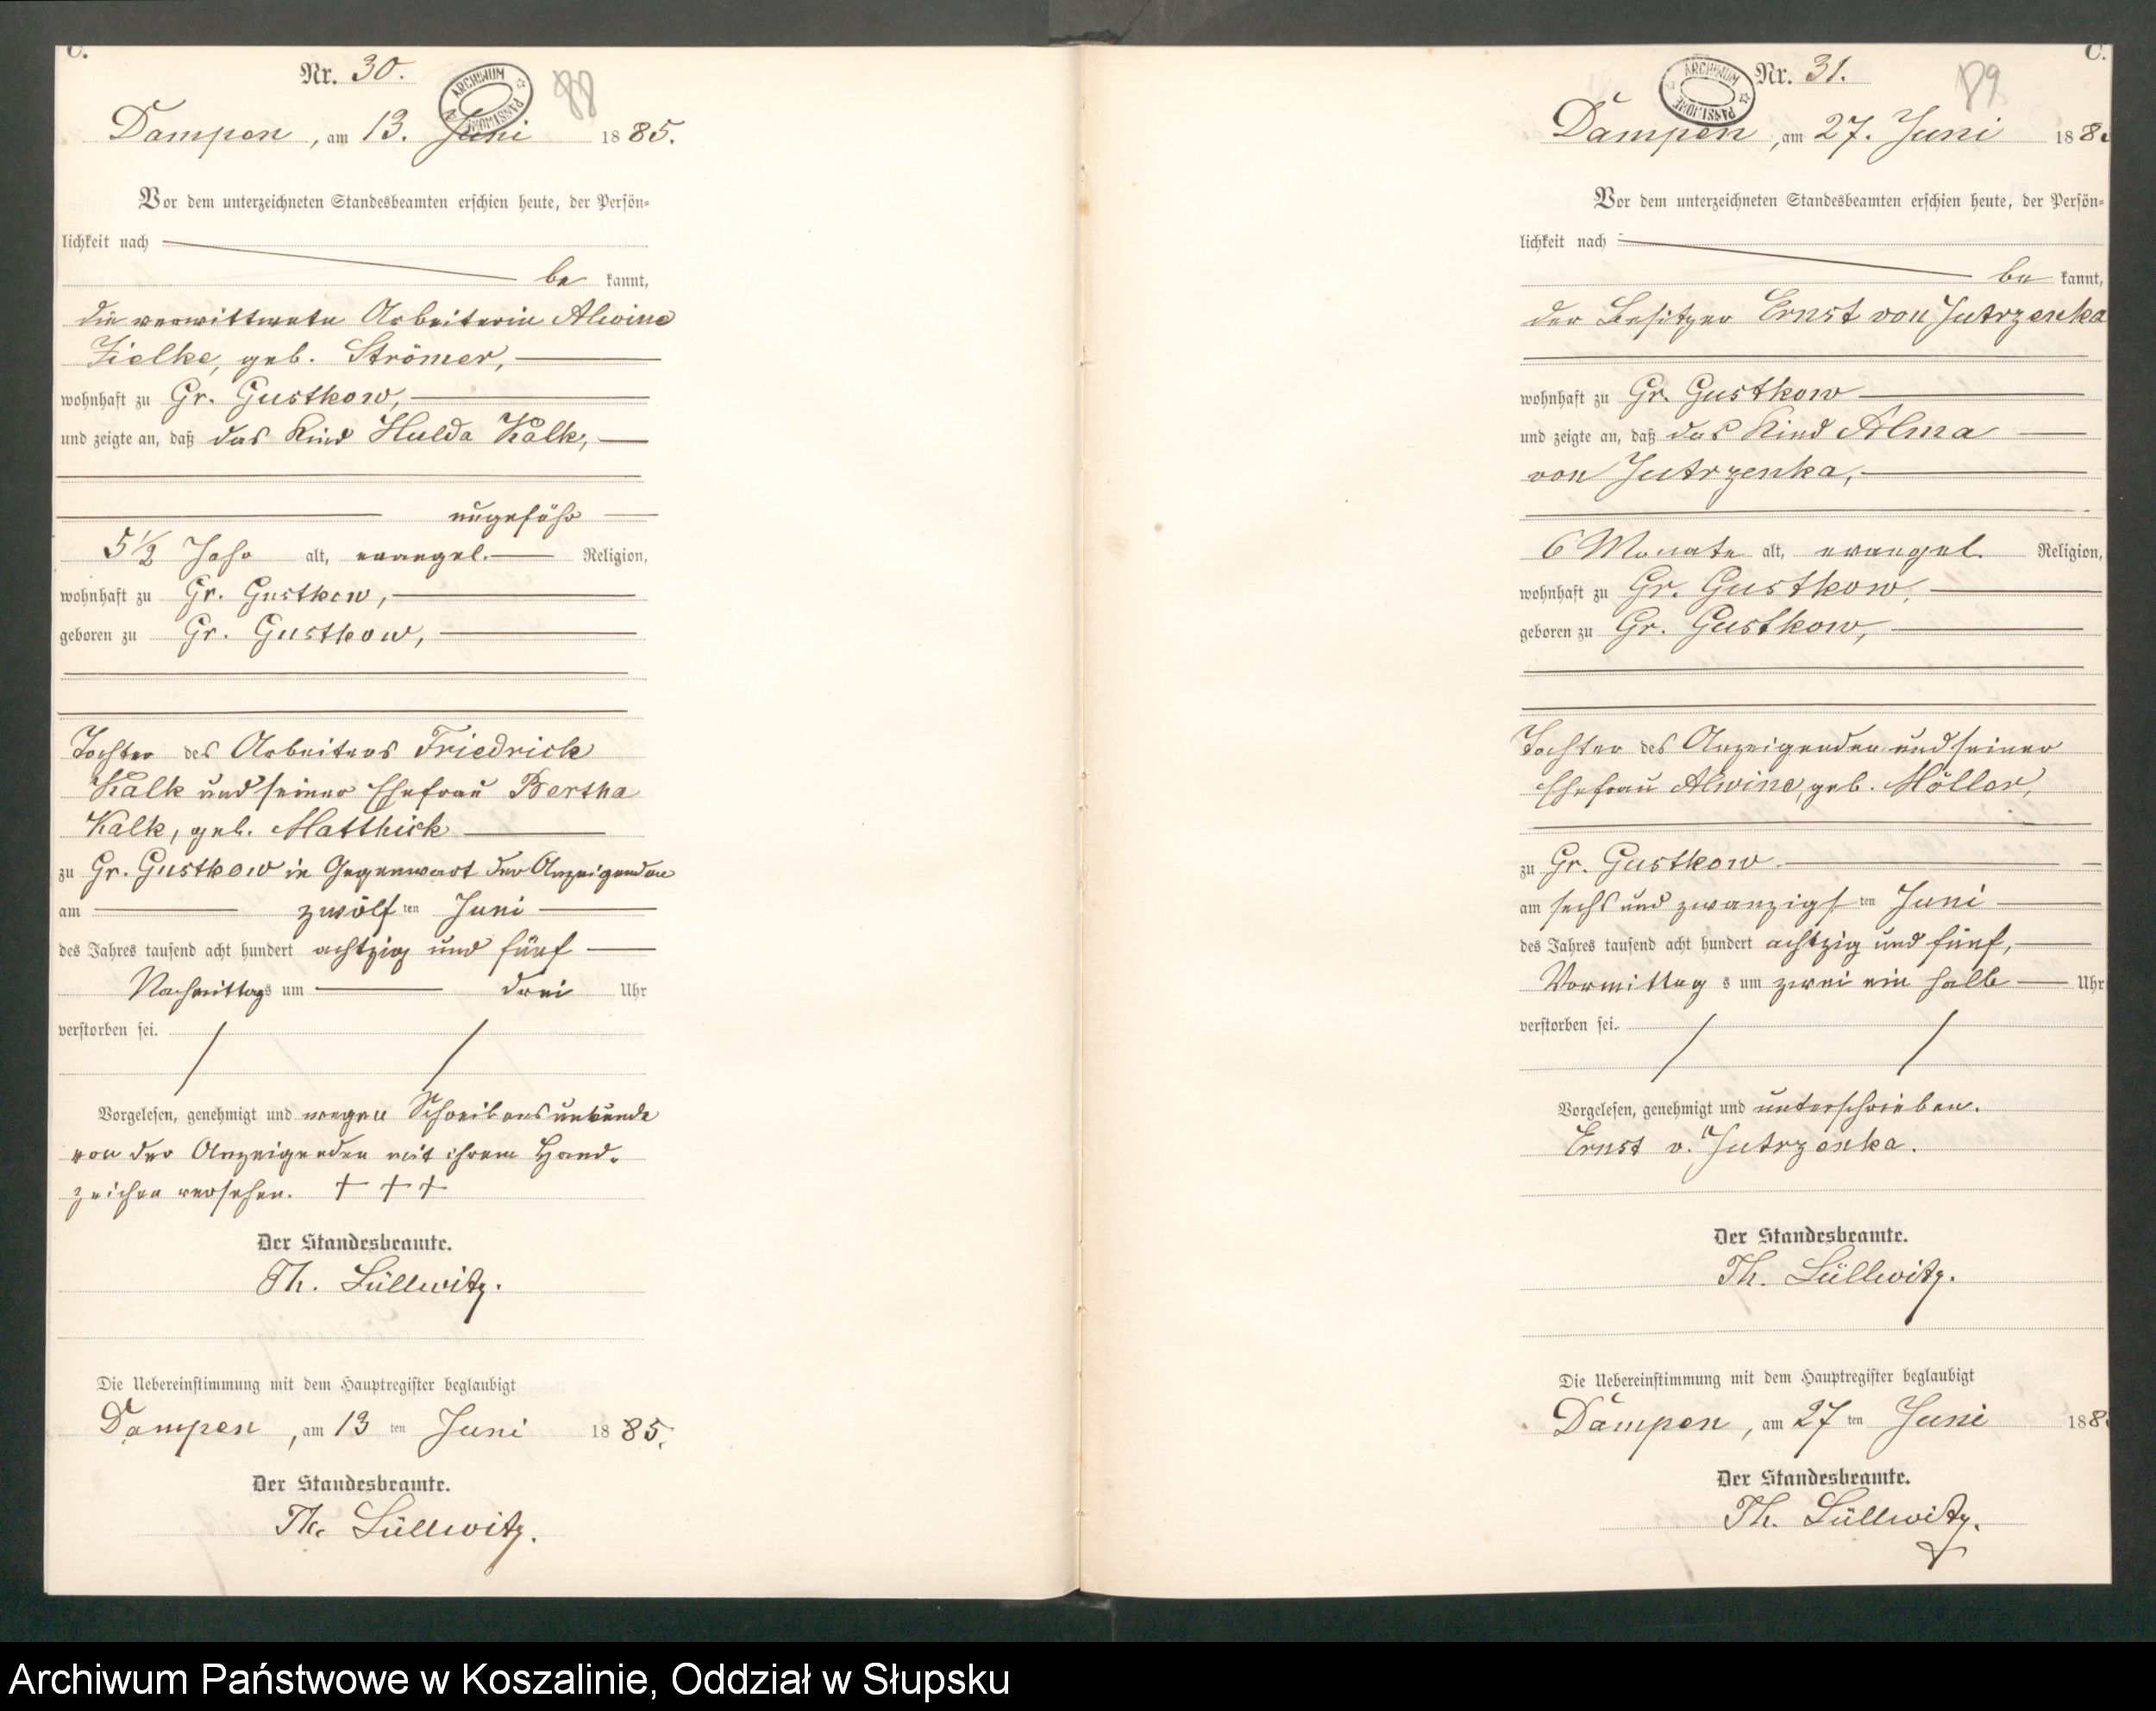 C.
Nr. 30.
ARCHIWUM PAŃSTWOWE
88
Dampen, am 13. Juni 1885.
Vor dem unterzeichneten Standesbeamten erschien heute, der Persön-
lichkeit nach
be kannt,
die verwittwete Arbeiterin Alwine
Zielke, geb. Strömer,
wohnhaft zu Gr. Gustkow,
und zeigte an, daß das Kind Hulda Kalk,
ungefähr
5 1/2 Jahr alt, evangel. Religion,
wohnhaft zu Gr. Gustkow,
geboren zu Gr. Gustkow,
Tochter des Arbeiters Friedrich
Kalk und seiner Ehefrau Bertha
Kalk, geb. Matthick
zu Gr. Gustkow in Gegenwart der Anzeigenden
am zwölf ten Juni
des Jahres tausend acht hundert achtzig und fünf
Nachmittags um drei Uhr
verstorben sei.
Vorgelesen, genehmigt und wegen Schreibensunkunde
von der Anzeigenden mit ihrem Hand-
zeichen versehen. + + +
Der Standesbeamte.
Th. Lüllwitz.
Die Uebereinstimmung mit dem Hauptregister beglaubigt
Dampen, am 13 ten Juni 1885.
Der Standesbeamte.
Th. Lüllwitz.
C.
Nr. 31.
ARCHIWUM PAŃSTWOWE
89
Dampen, am 27. Juni 188
Vor dem unterzeichneten Standesbeamten erschien heute, der Persön-
lichkeit nach
be kannt,
der Besitzer Ernst von Jutrzenka
wohnhaft zu Gr. Gustkow
und zeigte an, daß das Kind Alma
von Jutrzenka,
6 Monate alt, evangel. Religion,
wohnhaft zu Gr. Gustkow,
geboren zu Gr. Gustkow,
Tochter des Anzeigenden und seiner
Ehefrau Alwine, geb. Möller,
zu Gr. Gustkow.
am sechs und zwanzigs ten Juni
des Jahres tausend acht hundert achtzig und fünf,
Vormittag s um zwei ein halb Uhr
verstorben sei.
Vorgelesen, genehmigt und unterschrieben.
Ernst v. Jutrzenka.
Der Standesbeamte.
Th. Lüllwitz.
Die Uebereinstimmung mit dem Hauptregister beglaubigt
Dampen, am 27 ten Juni 188
Der Standesbeamte.
Th. Lüllwitz.
Archiwum Państwowe w Koszalinie, Oddział w Słupsku